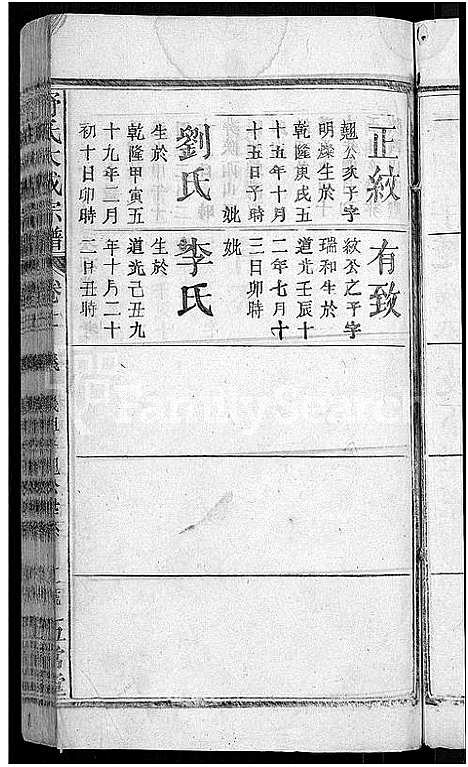 正紋
翹公次子字
明燦生於
乾隆庚戌五
十五年十月
十五日子時
妣
劉氏
生於
乾隆甲寅五
十九年二月
初十日卯時
有致
紋公之子字
瑞和生於
道光壬辰十
二年七月十
三日卯時
妣
李氏
生於
道光己丑九
年十月二十
二日丑時
舒氏大成宗譜
卷
FamilySearch